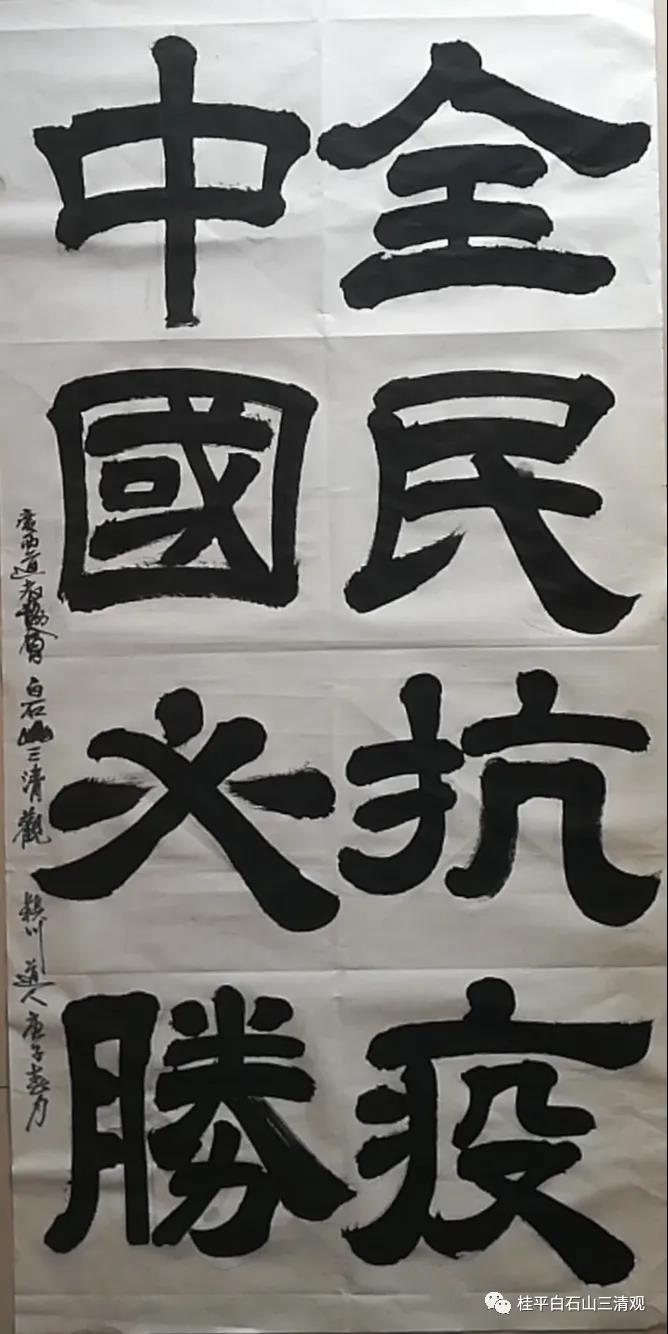 全民抗疫
中國必勝
廣西道教協會 白石山三清觀 頴川 道人 庚子春月
桂平白石山三清观